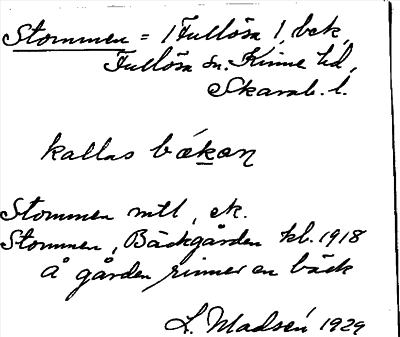 Stommen = | Fullösa |, bck,
Fullösa sn. Kinne hd,
Skarab. l.
kallas bækan
Stommen mtl, ek.
Stommen, Bäckgården kb. 1918
Å gården rinner en bäck
L. Madsén 1929